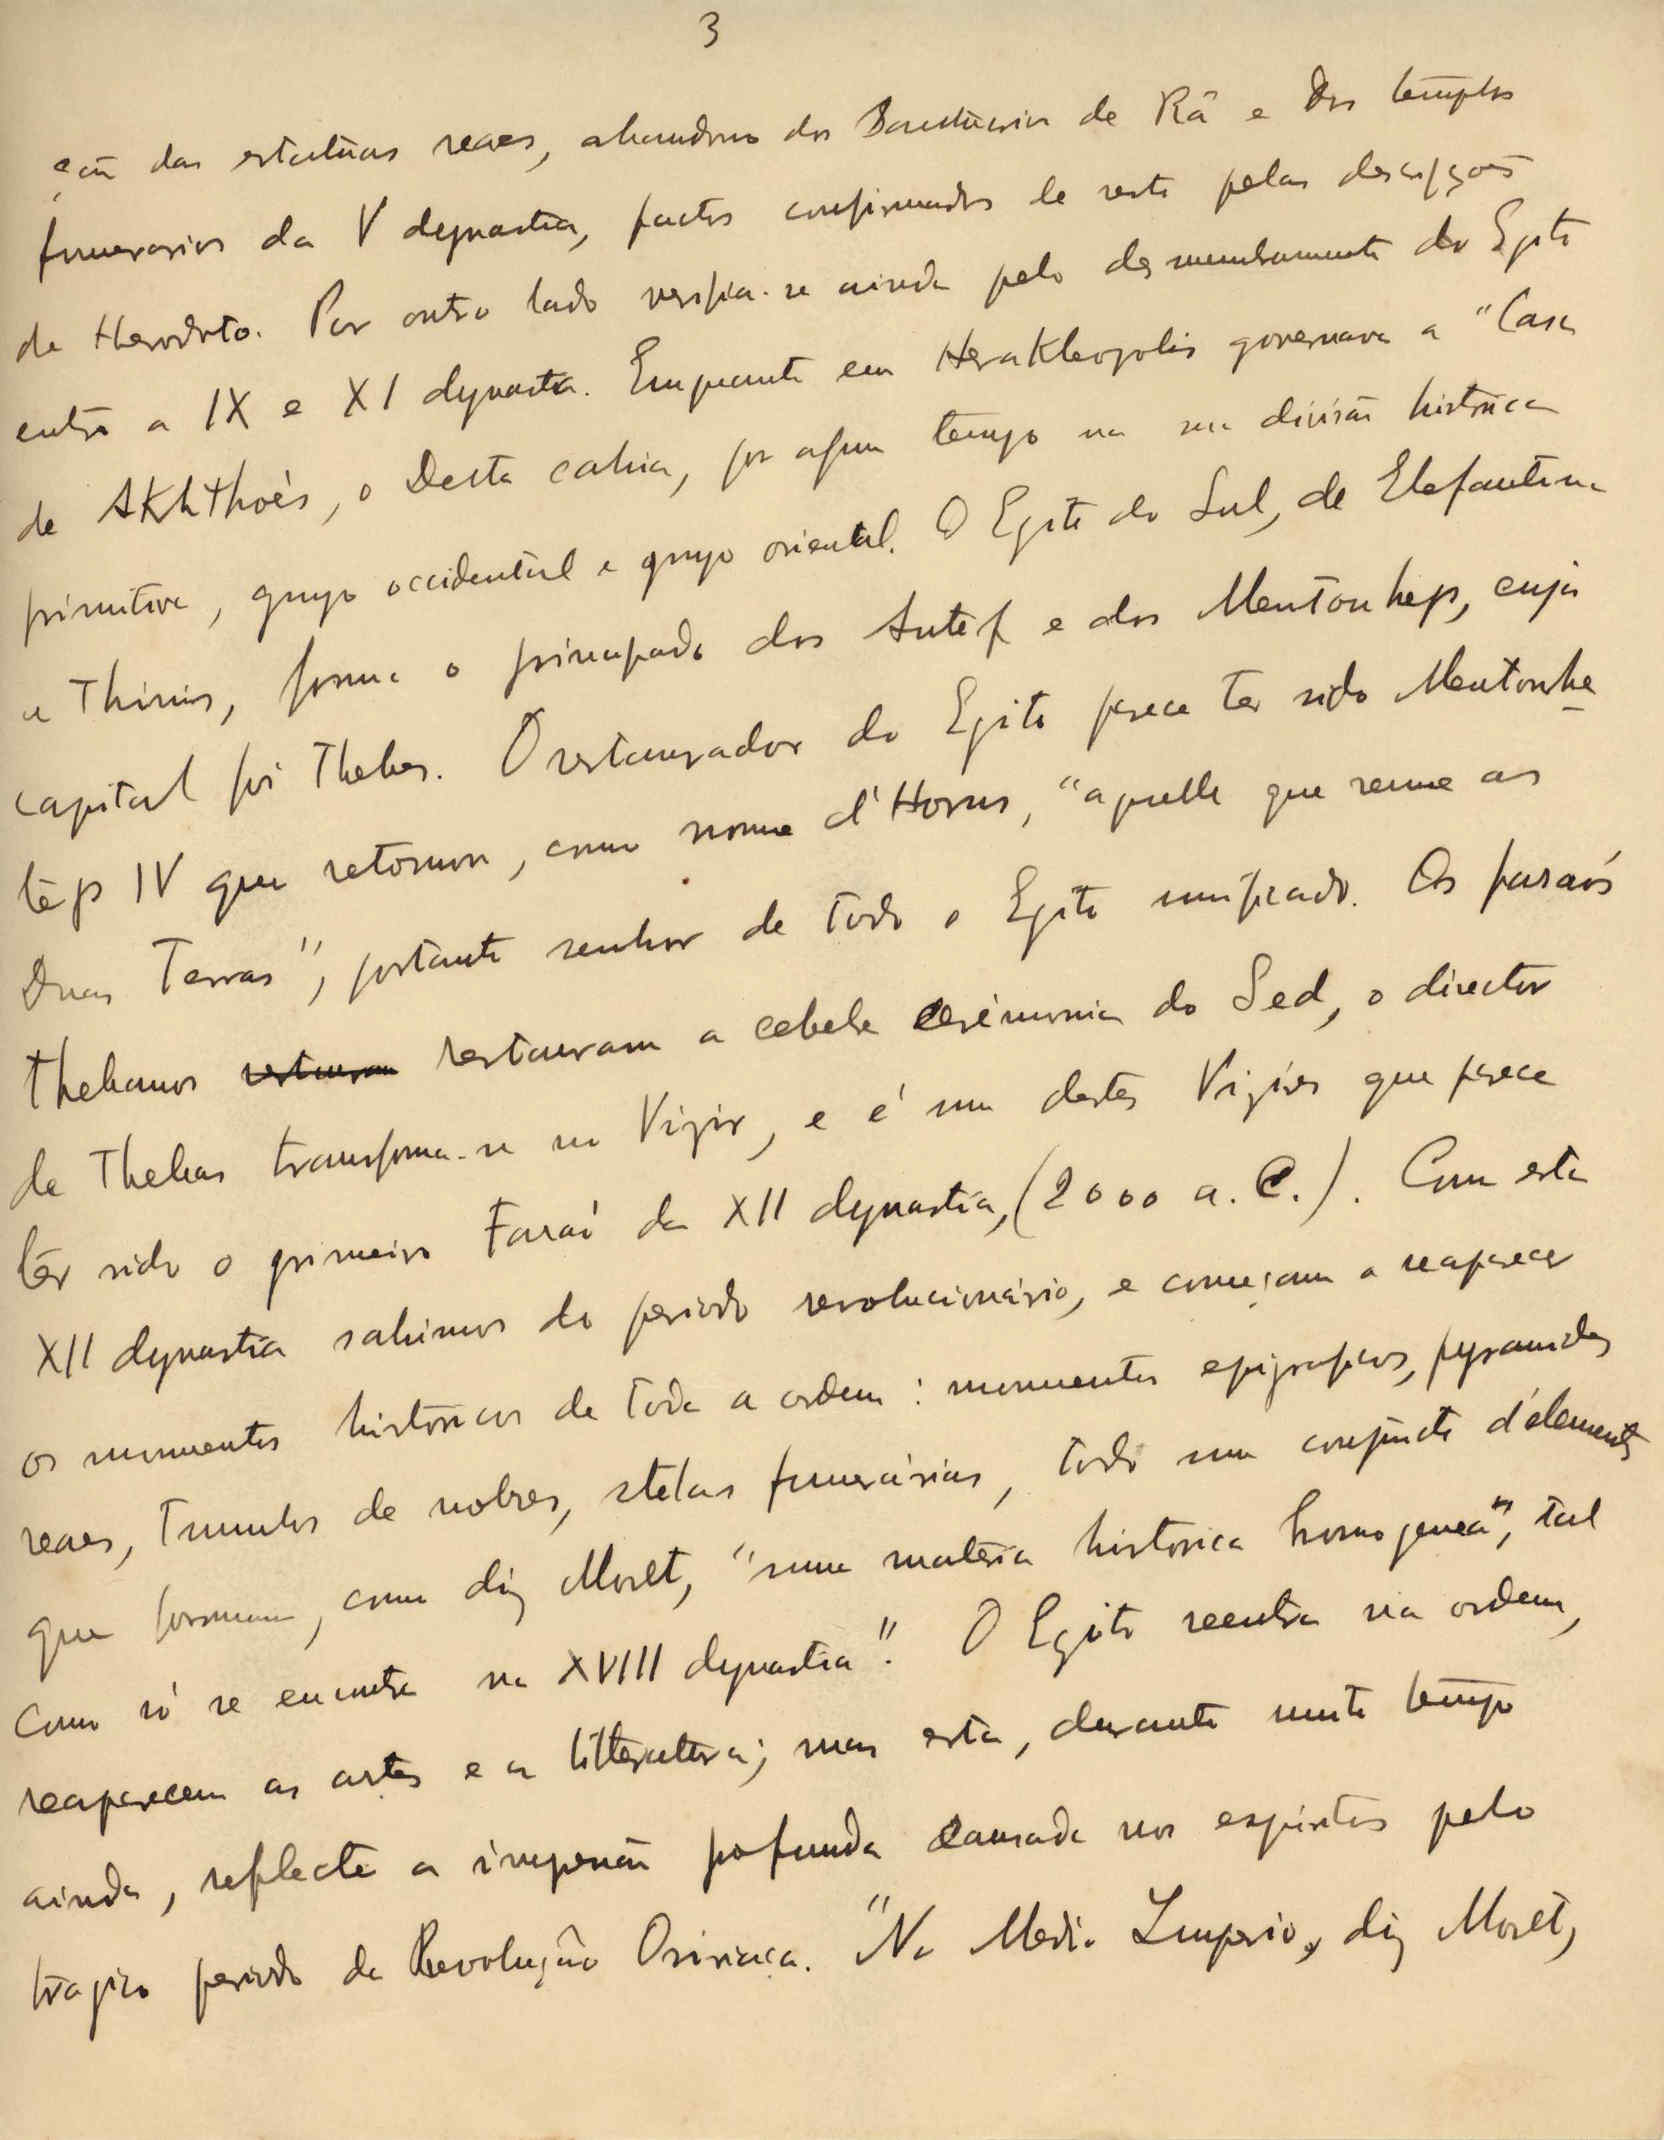 3
ção das estatuas reaes, abandono dos Sanctuarios de Râ e dos templos
funerarios da V dynastia, factos confirmados de resto pelas descripções
de Herodoto. Por outro lado verifica-se ainda pelo desmembramento do Egito
entre a IX e XI dynastia. Emquanto em Herakleopolis governava a "Casa
de Akhthoès, o Delta cahia, por algum tempo na sua divisão histórica
primitiva, grupo occidental e grupo oriental. O Egito do Sul, de Elefantina
a Thinis, forma o principado dos Antef e dos Mentouhep, cuja
capital foi Thebas. O restaurador do Egito parece ter sido Mentouhe
tep IV que retomou, como nome d'Horus, "aquelle que reune as
Duas Terras", portanto senhor de todo o Egito unificado. Os faraós
thebanos restauram a celebre cerémonia do Sed, o director
de Thebas transforma-se no Vizir, e é um destes Vizires que parece
ter sido o primeiro Faraó da XII dynastia, (2000 a. C.). Com esta
XII dynastia sahimos do periodo revolucionário, e começam a reaparecer
os monumentos históricos de toda a ordem: monumentos epigraficos, pyramides
reaes, tumulos de nobres, stelas funerárias, todo um conjuncto d'élementos
que formam, como diz Moret, "uma materia historica homogenea", tal
como só se encontra na XVIII dynastia". O Egito reentra na ordem,
reaparecem as artes e a litteratura; mas esta, durante muito tempo
ainda, reflecte a impressão profunda causada nos espiritos pelo
tragico periodo da Revolução Osiriaca. "No Medio Imperio, diz Moret,